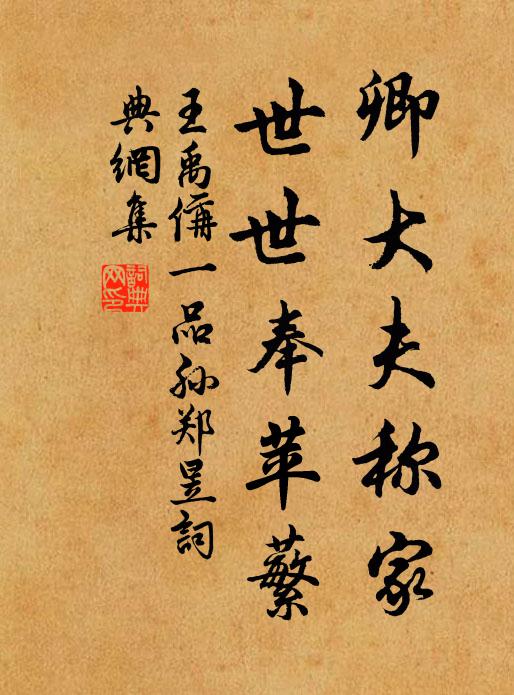 卿大夫称家
世世奉苹蘩
王禹偁一品孙郑昱詞
典網集
詞典网印